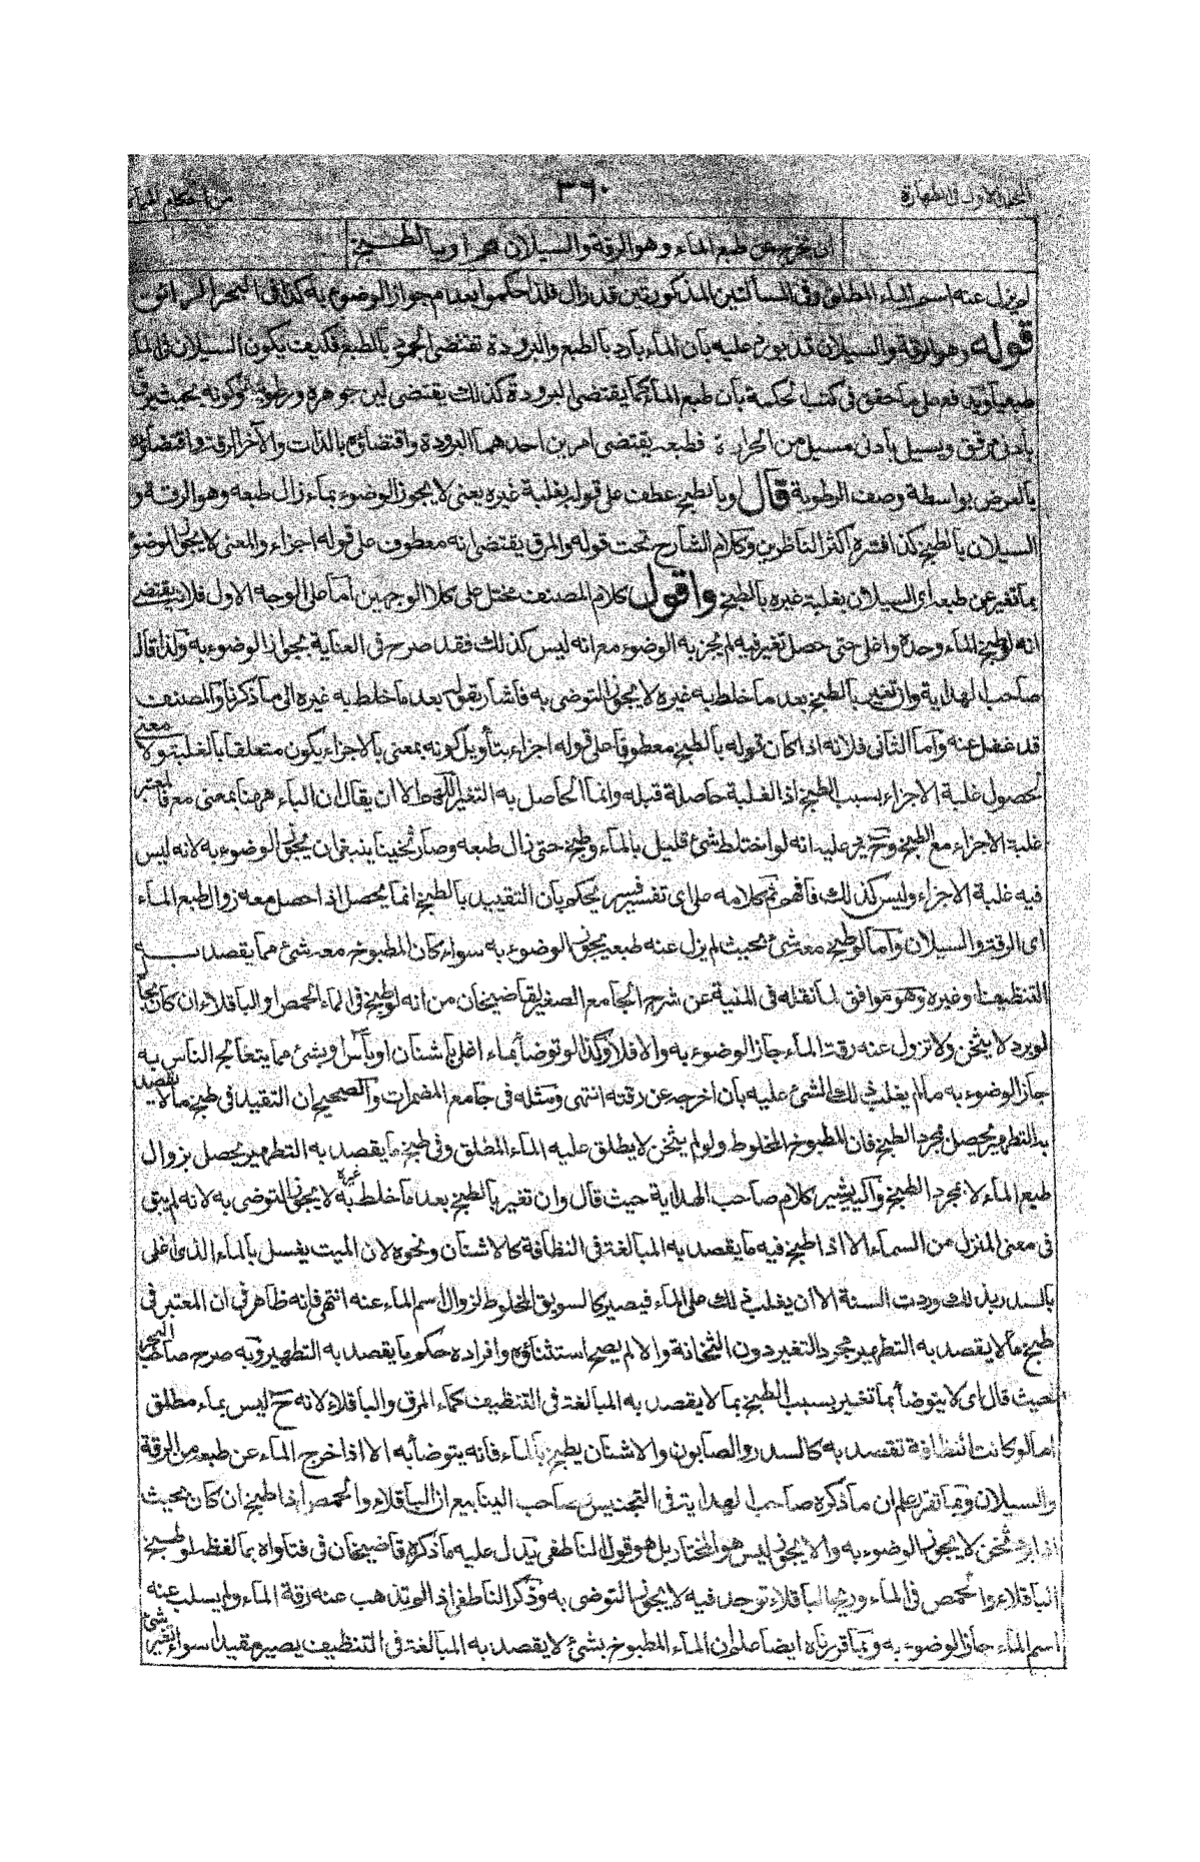 المجلد الاول فى الطهارة
٣٦٠
من احكام المياه
اى يخرج عن طبع الماء وهو الرقة والسيلان م او بالطبخ
لم يزل عنه اسم الماء المطلق وفى المسألتين المذكورتين قد زال فلذا حكموا بعدم جواز الوضوء به كذا فى البحر الرائق
قوله وهو الرقة والسيلان قد يورد عليه بان الماء بارد بالطبع والبرودة تقتضى الجمود بالطبع فكيف يكون السيلان فى الماء
طبعيا ويدفع على ما حقق فى كتب الحكمة بان طبع الماء كما يقتضى البرودة كذلك يقتضى لين جوهره ورطوبته وكونه بحيث يرق
بأدنى مرقق ويسيل بأدنى مسيل من الحرارة فطبعه يقتضى امرين احدهما البرودة واقتضاؤه بالذات والآخر الرقة واقتضاؤه
بالعرض بواسطة وصف الرطوبة قال او بالطبخ عطف على قوله بغلبة غيره يعنى لا يجوز الوضوء بماء زال طبعه وهو الرقة و
السيلان بالطبخ كذا اقره اكثر الناظرين وكلام الشارح تحت قوله والمرق يقتضى انه معطوف على قوله اجزاء والمعنى لا يجوز الوضوء
بما تغير عن طبعه اى السيلان بغلبة غيره بالطبخ واقول كلام المصنف مختل على كلا الوجهين أما على الوجه الاول فلانه يقتضى
انه لو طبخ الماء وحده واغلى حتى حصل تغير فيه لم يجز به الوضوء مع انه ليس كذلك فقد صرح فى العناية بجواز الوضوء به ولذا قال
صاحب الهداية وان تغير بالطبخ بعد ما خلط به غيره لا يجوز التوضى به فأشار بقوله بعد ما خلط به غيره الى ما ذكرنا والمصنف
قد غفل عنه وأما الثانى فلانه اذا كان قوله بالطبخ معطوفا على قوله اجزاء بتأويل كونه بمعنى بالاجزاء يكون متعلقا بالغلبة ولا معنى
لحصول غلبة الاجزاء بسبب الطبخ اذ الغلبة حاصلة قبله وانما الحاصل به التغير اللهم الا ان يقال ان الباء ههنا بمعنى مع فالمعتبر
غلبة الاجزاء مع الطبخ وح يرد عليه انه لو اختلط شئ قليل بالماء وطبخ حتى زال طبعه وصار ثخينا ينبغى ان يجوز الوضوء به لانه ليس
فيه غلبة الاجزاء وليس كذلك فافهم ثم كلامه على اى تفسير فسر يحكم بان التقييد بالطبخ انما يحصل اذا حصل معه زوال طبع الماء
اى الرقة والسيلان وأما لو طبخ معه شئ بحيث لم يزل عنه طبعه يجوز الوضوء به سواء كان المطبوخ معه شئ مما يقصد به
التنظيف او غيره وهو موافق لما نقله فى المنية عن شرح الجامع الصغير لقاضيخان من انه لو طبخ فى الماء الحمص والباقلاء ان كان بحال
لو برد لا يثخن ولا تزول عنه رقة الماء جاز الوضوء به والا فلا وكذا لو توضأ بماء اغلى باشنان او بآس او بشئ مما يتعالج الناس به
جاز الوضوء به ما لم يغلب ذلك الشئ عليه بان اخرجه عن رقته انتهى ومثله فى جامع المضمرات والصحيح ان التقيد فى طبخ ما لا يقصد
به التطهير يحصل بمجرد الطبخ فان المطبوخ المخلوط ولو لم يثخن لا يطلق عليه الماء المطلق وفى طبخ ما يقصد به التطهير يحصل بزوال
طبع الماء لا بمجرد الطبخ واليه يشير كلام صاحب الهداية حيث قال وان تغير بالطبخ بعد ما خلط به غيره لا يجوز التوضى به لانه لم يبق
فى معنى المنزل من السماء الا اذا طبخ فيه ما يقصد به المبالغة فى النظافة كالاشنان ونحوه لان الميت يغسل بالماء الذى اغلى
بالسدر بذلك وردت السنة الا أن يغلب ذلك على الماء فيصير كالسويق المخلوط لزوال اسم الماء عنه انتهى فانه ظاهر فى ان المعتبر فى
طبخ ما لا يقصد به التطهير مجرد التغير دون الثخانة والا لم يصح استثناؤه وافراده حكم ما يقصد به التطهير وبه صرح صاحب البحر
حيث قال اى لا يتوضأ بما تغير بسبب الطبخ بما لا يقصد به المبالغة فى التنظيف كماء المرق والباقلاء لانه ح ليس بماء مطلق
اما لو كانت النظافة تقصد به كالسدر والصابون والاشنان يطبخ بالماء فانه يتوضأ به الا اذا خرج الماء عن طبعه من الرقة
والسيلان وبما تقرر علم ان ما ذكره صاحب الهداية فى التجنيس وصاحب الينابيع ان الباقلاء والحمص اذا طبخ ان كان بحيث
اذا برد ثخن لا يجوز الوضوء به والا يجوز ليس هو المختار بل هو قول الناطفى يدل عليه ما ذكره قاضيخان فى فتاواه بما لفظه لو طبخ
الباقلاء والحمص فى الماء وريح الباقلاء توجد فيه لا يجوز التوضى به وذكر الناطفى اذا لم تذهب عنه رقة الماء ولم يسلب عنه
اسم الماء جاز الوضوء به وبما قررناه ايضا علم ان الماء المطبوخ بشئ لا يقصد به المبالغة فى التنظيف يصير مقيدا سواء تغير شئ